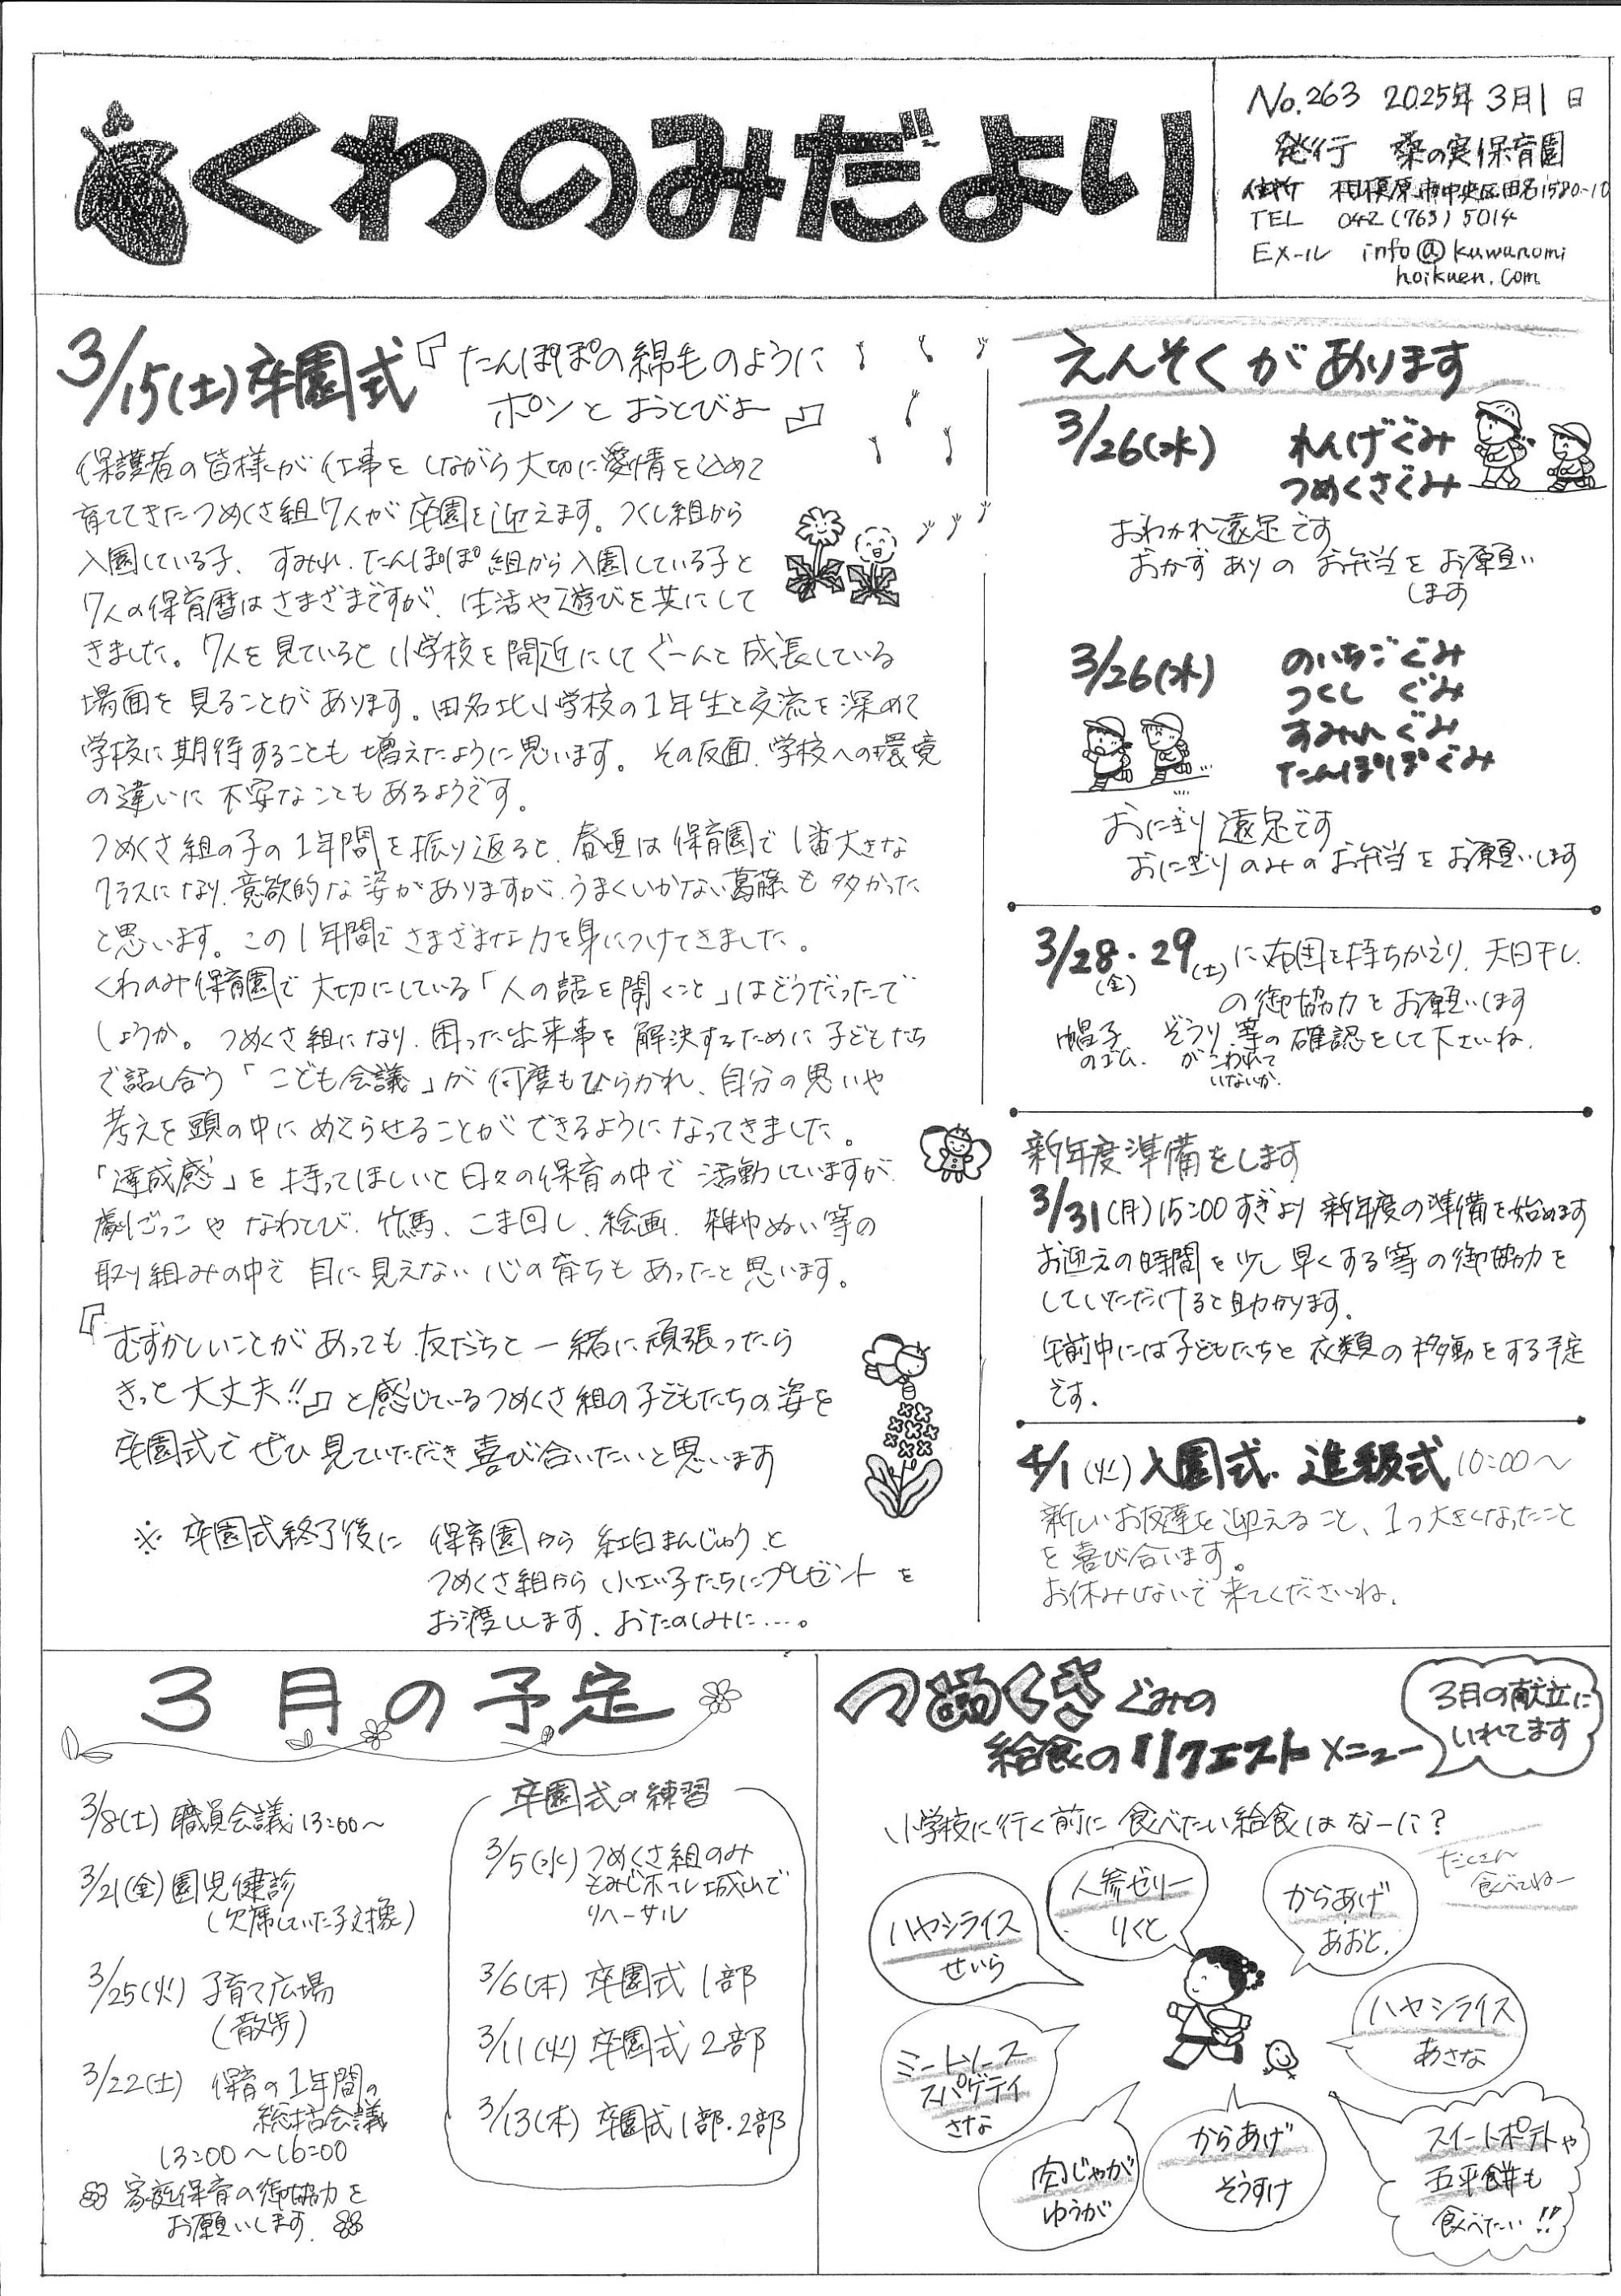 くわのみだより
No.263 2025年3月1日
発行 桑の実保育園
住所 相模原市中央区田名1580-10
TEL 042(763)5014
Eメール info@kuwanomi
hoikuen.com
3/15(土)卒園式『たんぽぽの綿毛のように
ポンと おとびよー』
保護者の皆様が仕事をしながら大切に愛情を込めて
育ててきたつめくさ組7人が卒園を迎えます。つくし組から
入園している子、すみれ、たんぽぽ組から入園している子と
7人の保育暦はさまざまですが、生活や遊びを共にして
きました。7人を見ていると小学校を間近にしてぐーんと成長している
場面を見ることがあります。田名北小学校の1年生と交流を深めて
学校に期待することも増えたように思います。その反面、学校への環境
の違いに不安なこともあるようです。
つめくさ組の子の1年間を振り返ると、春頃は保育園で1番大きな
クラスになり、意欲的な姿がありますが、うまくいかない葛藤も多かった
と思います。この1年間でさまざまな力を身につけてきました。
くわのみ保育園で大切にしている「人の話を聞くこと」はどうだったで
しょうか。つめくさ組になり、困った出来事を解決するために子どもたち
で話し合う「こども会議」が何度もひらかれ、自分の思いや
考えを頭の中にめぐらせることができるようになってきました。
「達成感」を持ってほしいと日々の保育の中で活動していますが、
劇ごっこやなわとび、竹馬、こま回し、絵画、雑巾ぬい等の
取り組みの中で目に見えない心の育ちもあったと思います。
『むずかしいことがあっても友だちと一緒に頑張ったら
きっと大丈夫!!』と感じているつめくさ組の子どもたちの姿を
卒園式でぜひ見ていただき喜び合いたいと思います
※卒園式終了後に 保育園から紅白まんじゅうと
つめくさ組から小さい子たちにプレゼントを
お渡しします、おたのしみに….。
えんそくがあります
3/26(水) れんげぐみ
つめくさぐみ
おわかれ遠足です
おかずありのお弁当をお願い
します
3/26(水) のいちごぐみ
つくしぐみ
すみれぐみ
たんぽぽぐみ
おにぎり遠足です
おにぎりのみのお弁当をお願いします
3/28(金)・29(土)に布団を持ちかえり、天日干し
の御協力をお願いします
帽子のゴム、ぞうりがこわれていないか、等の確認をして下さいね。
新年度準備をします
3/31(月)15:00すぎより新年度の準備を始めます
お迎えの時間を少し早くする等の御協力を
していただけると助かります。
午前中には子どもたちと衣類の移動をする予定
です。
4/1(火)入園式、進級式10:00～
新しいお友達を迎えること、1つ大きくなったこと
を喜び合います。
お休みしないで来てくださいね。
3月の予定
3/8(土)職員会議13:00～
3/21(金)園児健診
(欠席していた子対象)
3/25(火)子育て広場
(散歩)
3/22(土) 保育の1年間の
総括会議
13:00～16:00
家庭保育の御協力を
お願いします
卒園式の練習
3/5(水)つめくさ組のみ
もみじホール城山で
リハーサル
3/6(木) 卒園式1部
3/11(火)卒園式2部
3/13(木)卒園式1部・2部
つめくさぐみの
給食のリクエストメニュー
3月の献立に
いれてます
小学校に行く前に食べたい給食はなーに?
たくさん
食べてねー
ハヤシライス
せいら
人参ゼリー
りくと
からあげ
あおと
ハヤシライス
あさな
ミートソース
スパゲティ
さな
肉じゃが
ゆうが
からあげ
そうすけ
スイートポテトや
五平餅も
食べたい!!